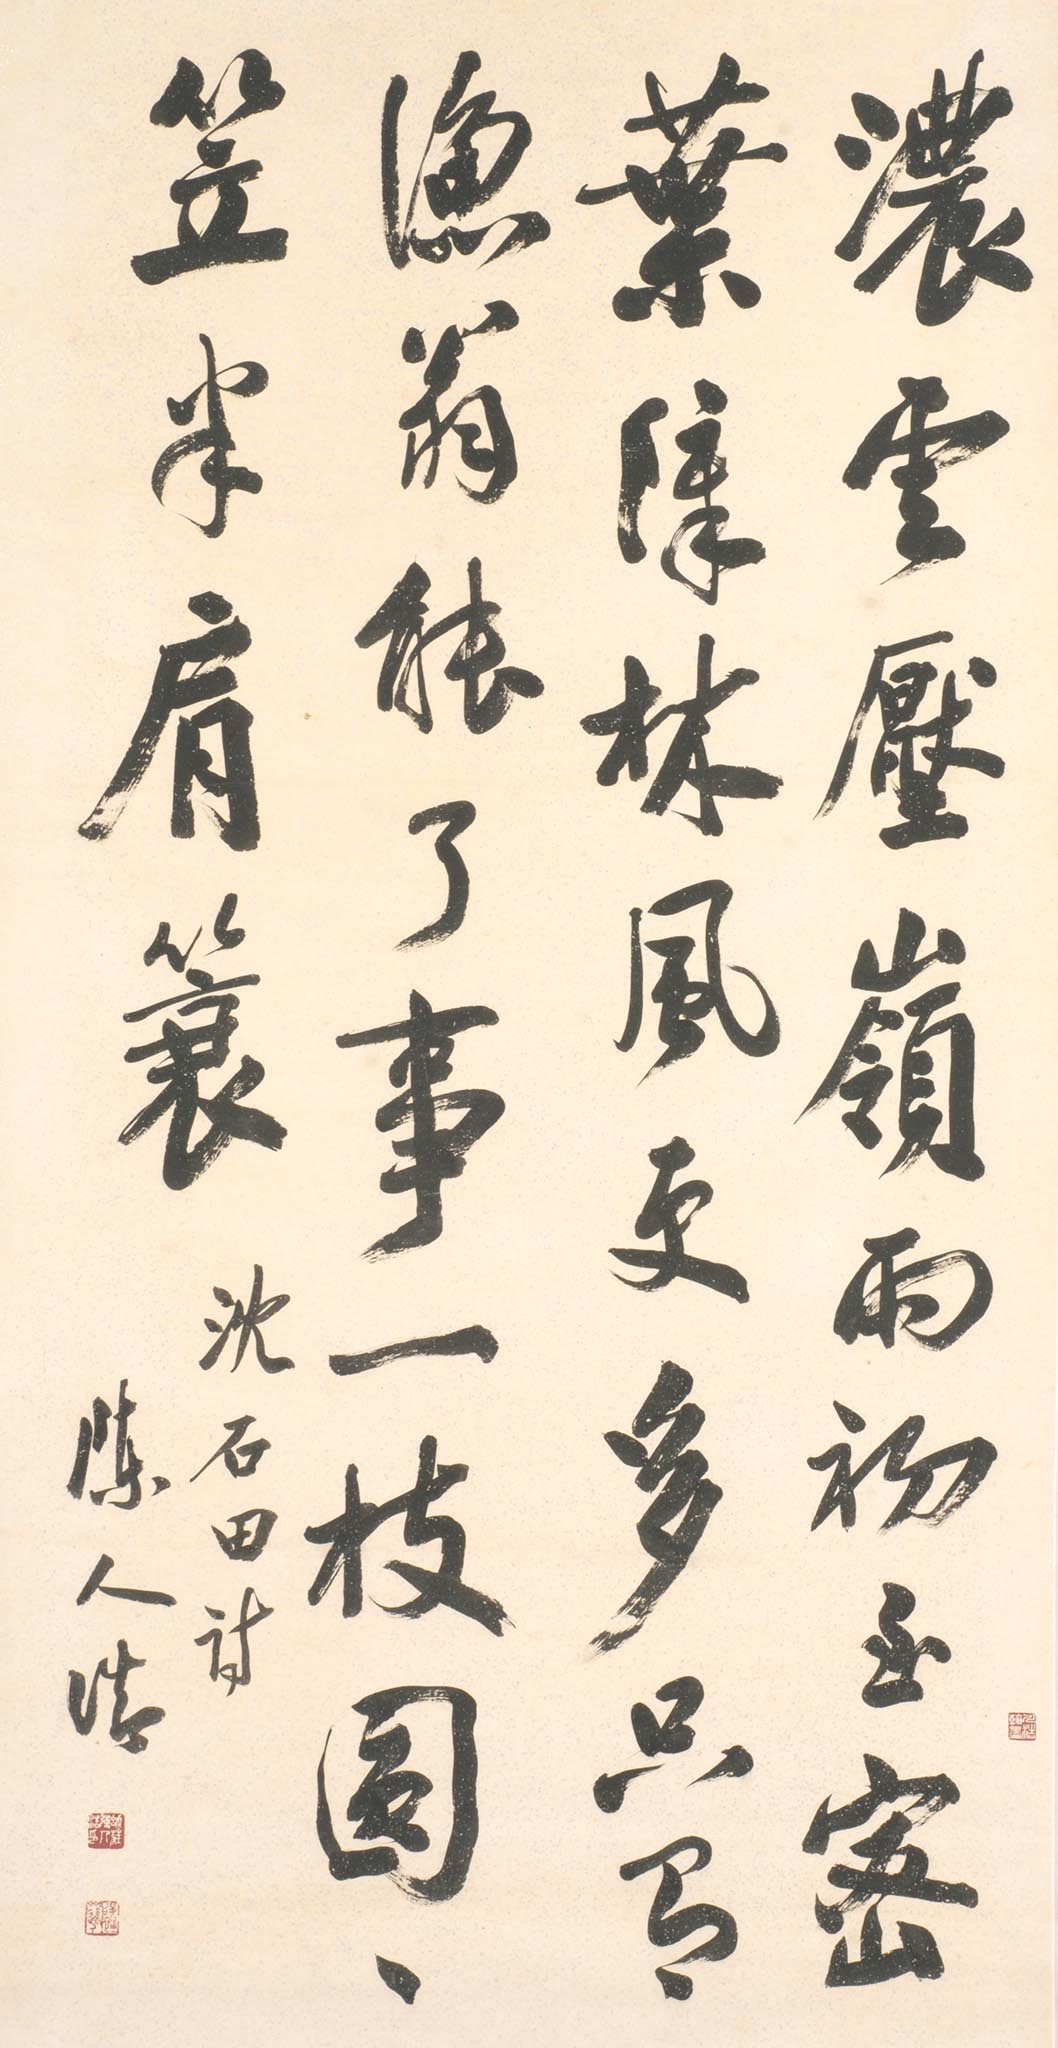 濃雲壓嶺雨初至密
葉障林風更多只有
漁翁能了事一枝圓
笠半肩簑
沈石田詩
陳人浩